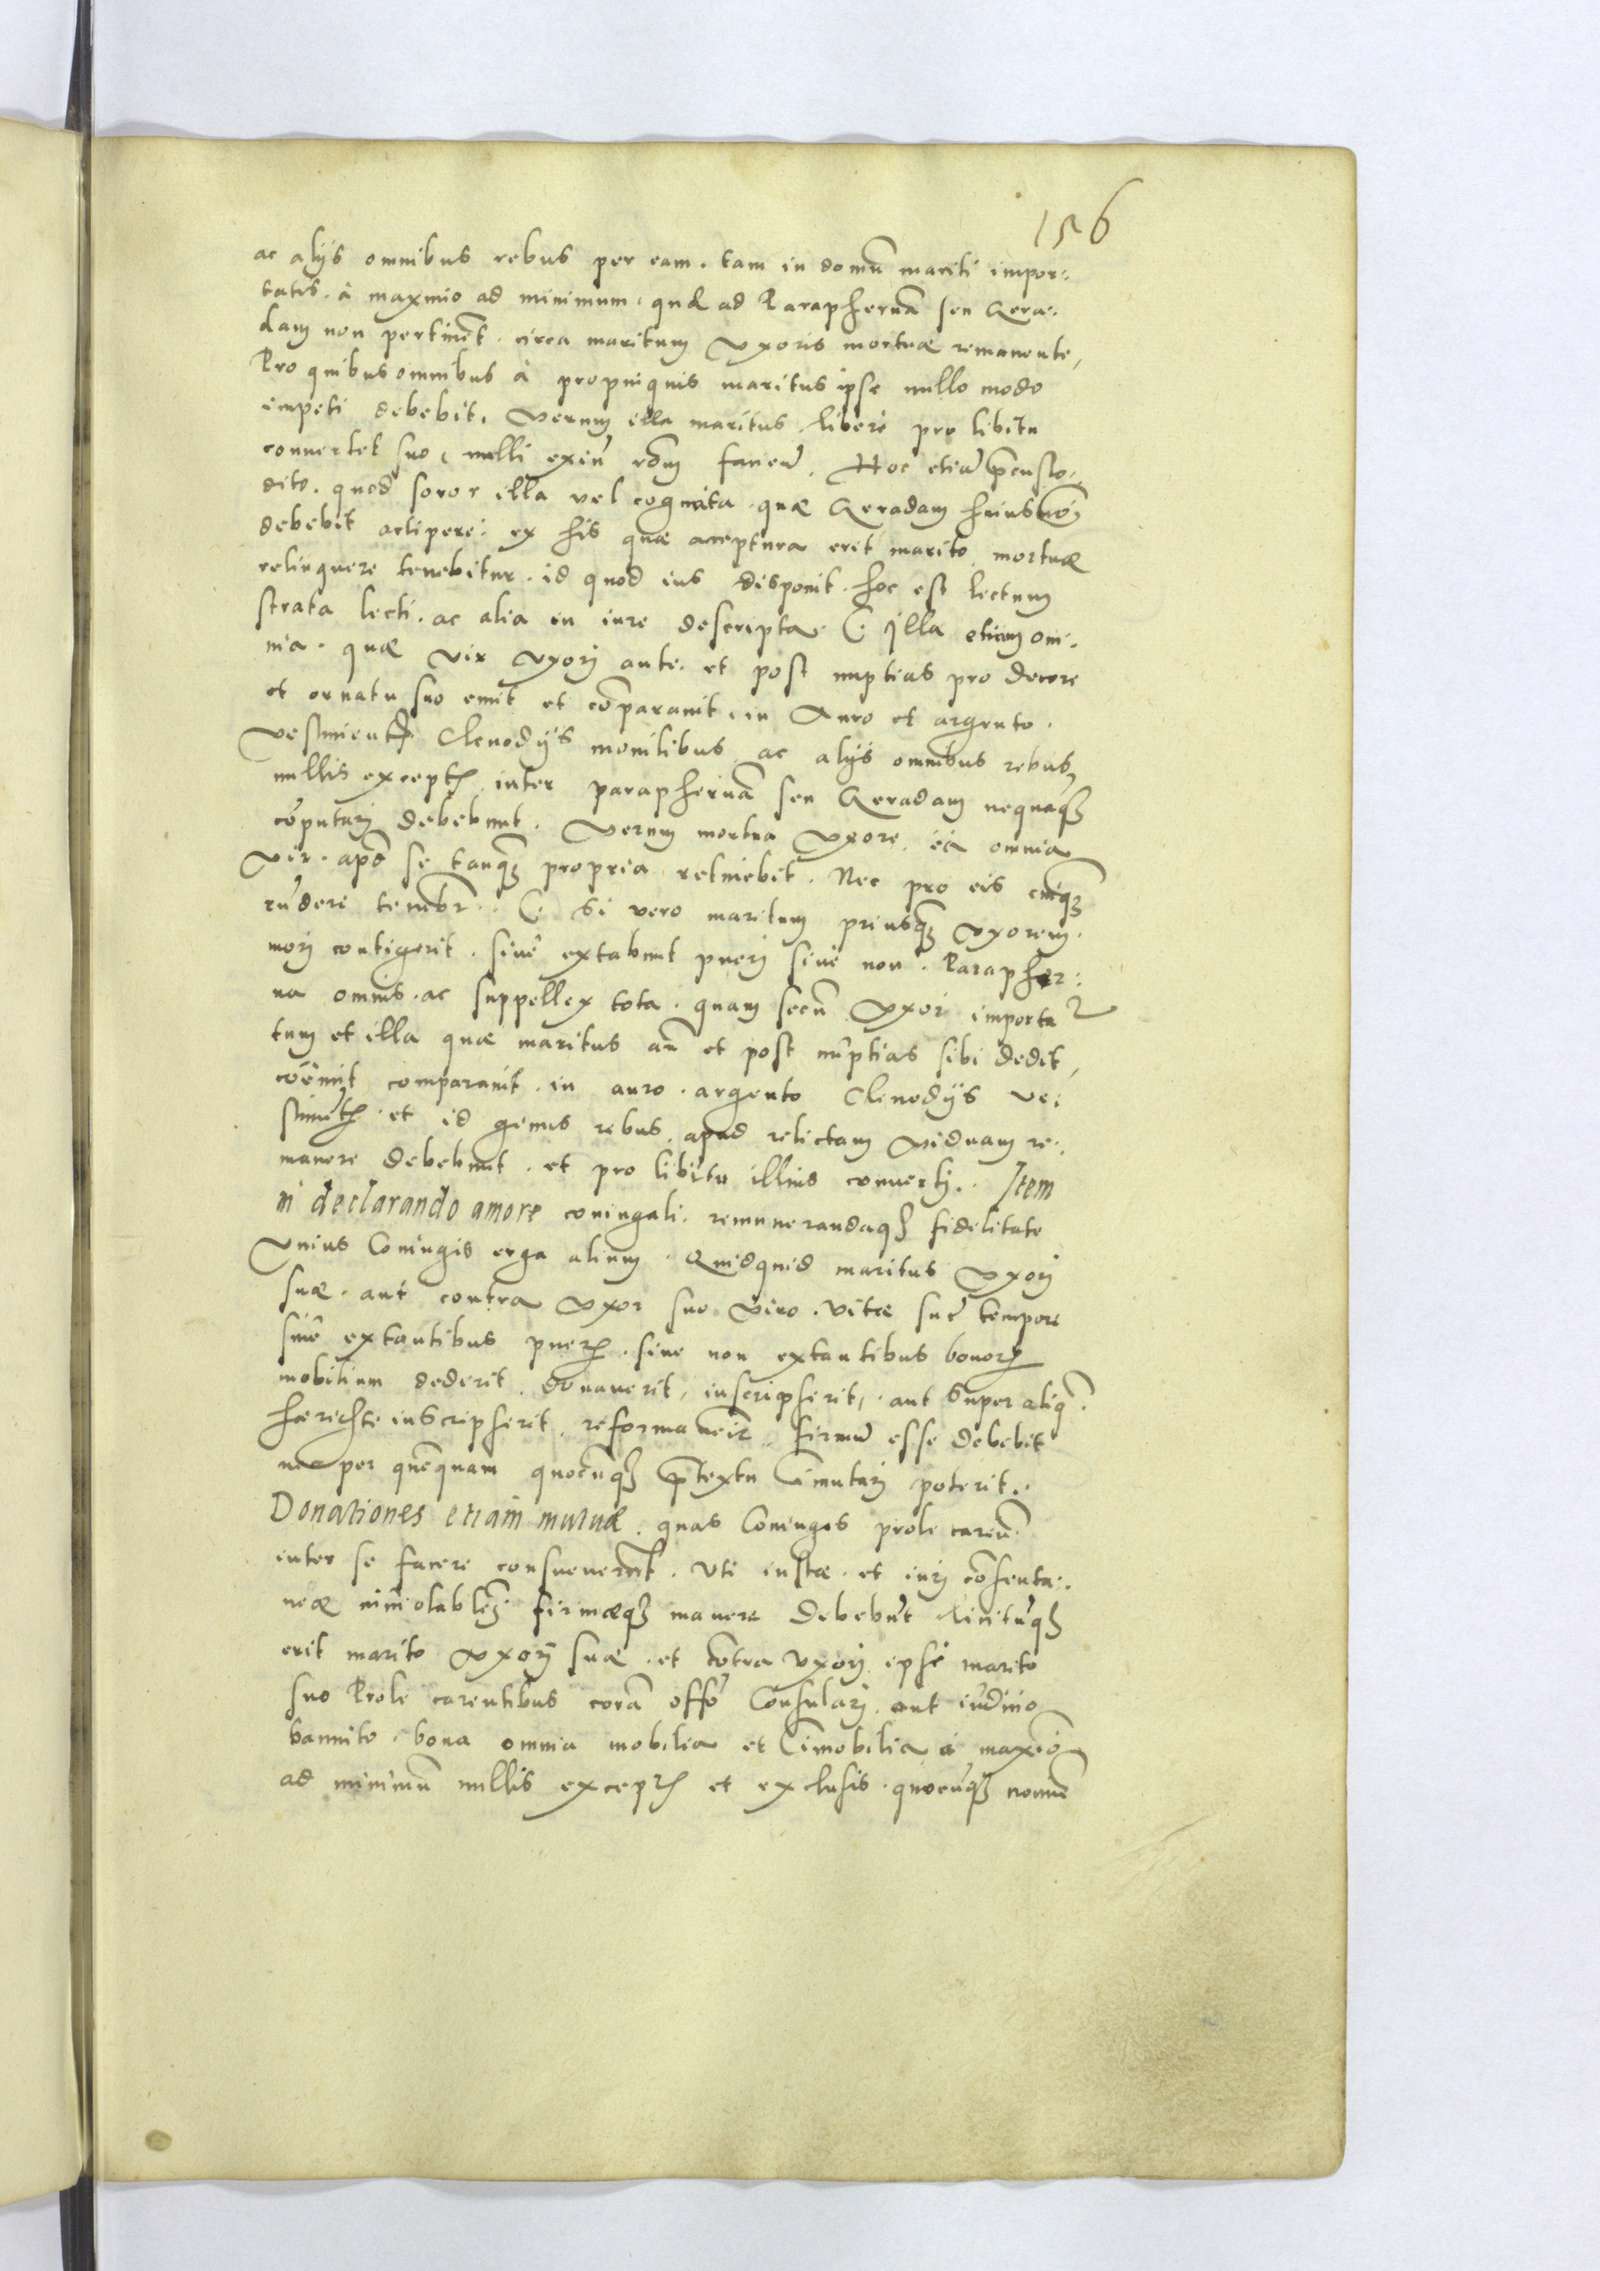 156
ac alijs omnibus rebus per eam. tam in domũ mariti impor:
tatis. à maximo ad minimum. quæ ad Paraphernã seu Gera:
dam non pertinẽt. circa maritum vxoris mortuæ remanente,
Pro quibus omnibus à propinquis maritus ipse nullo modo
impeti debebit. verum illa maritus libere pro libitu
conuertet suo, nulli exin rõm faneñ. Hoc etiã p̄custo:
dito. quod soror illa vel cognata quæ Geradam huiusmõi
debebit accipere: ex his quæ acceptura erit marito mortuæ
relinquere tenebitur. id quod ius disponit. hoc est lectum
strata lecti. ac alia in iure descripta. C Illa etiam om:
nia. quæ vir vxori ante. et post nuptias pro decore
et ornatu suo emit et cõparauit. in Auro et argento.
vestimentis Clenodijs monilibus ac alijs omnibus rebus
nullis exceptis inter paraphernã seu Geradam nequaq̃
cõputari debebunt. verum mortua vxore. ea omnia
vir. apud se tanq̃ propria retinebit. Nec pro eis cuiq̃
rñdere tenebr̃. C Si vero maritum priusq̃ vxorem
mori contigerit. siue extabunt pueri siue non. Parapher:
na omnis. ac suppellex tota. quam secũ vxor importa
tum et illa quæ maritus añ et post nuptias sibi dedit,
coemit comparauit. in auro. argento Clenodijs ve:
stimẽtis et id genus rebus. apud relictam viduam re:
manere debebunt. et pro libitu illius conuerti. Item
in declarando amore coniugali. remunerandaq̃ fidelitate
vnius Coniugis erga alium. Quidquid maritus vxori
suæ. aut contra vxor suo viro. vitæ suæ tempore
siue extantibus pueris. siue non extantibus bonorũ
mobilium dederit. donauerit, inscripserit, aut super aliq̃
inscripserit. reformauerit firmũ esse debebit
nec per quẽquam quocũq̃ p̄textu immutari poterit.
Donationes etiam mutuæ. quas Coniuges prole careñ
inter se facere consueuerunt. vti iustæ. et iuri cõsenta:
neæ inuiolabiles firmæq̃ manere debebũt licitũq̃
erit marito vxori suæ. et cõtra vxori ipsi marito
suo Prole carentibus corã offo Consulari. aut iudicio
bannito. bona omnia mobilia et immobilia à maximo
ad minimũ nullis exceptis et exclusis. quocũq̃ nomine